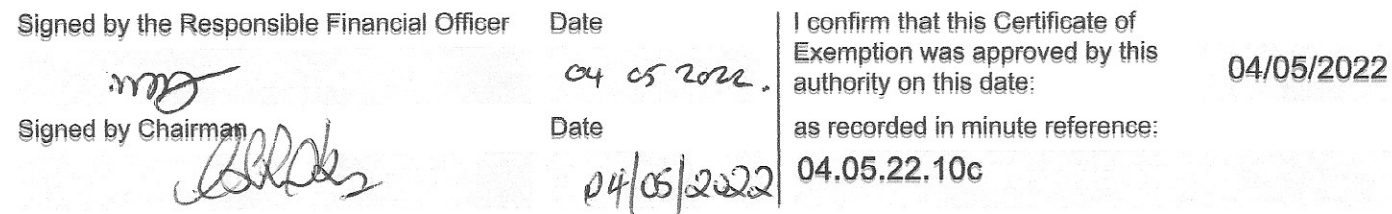 Signed by the Responsible Financial Officer
Date
04 05 2022.
Signed by Chairman
Date
04/05/2022
I confirm that this Certificate of
Exemption was approved by this
authority on this date:
04/05/2022
as recorded in minute reference:
04.05.22.10c